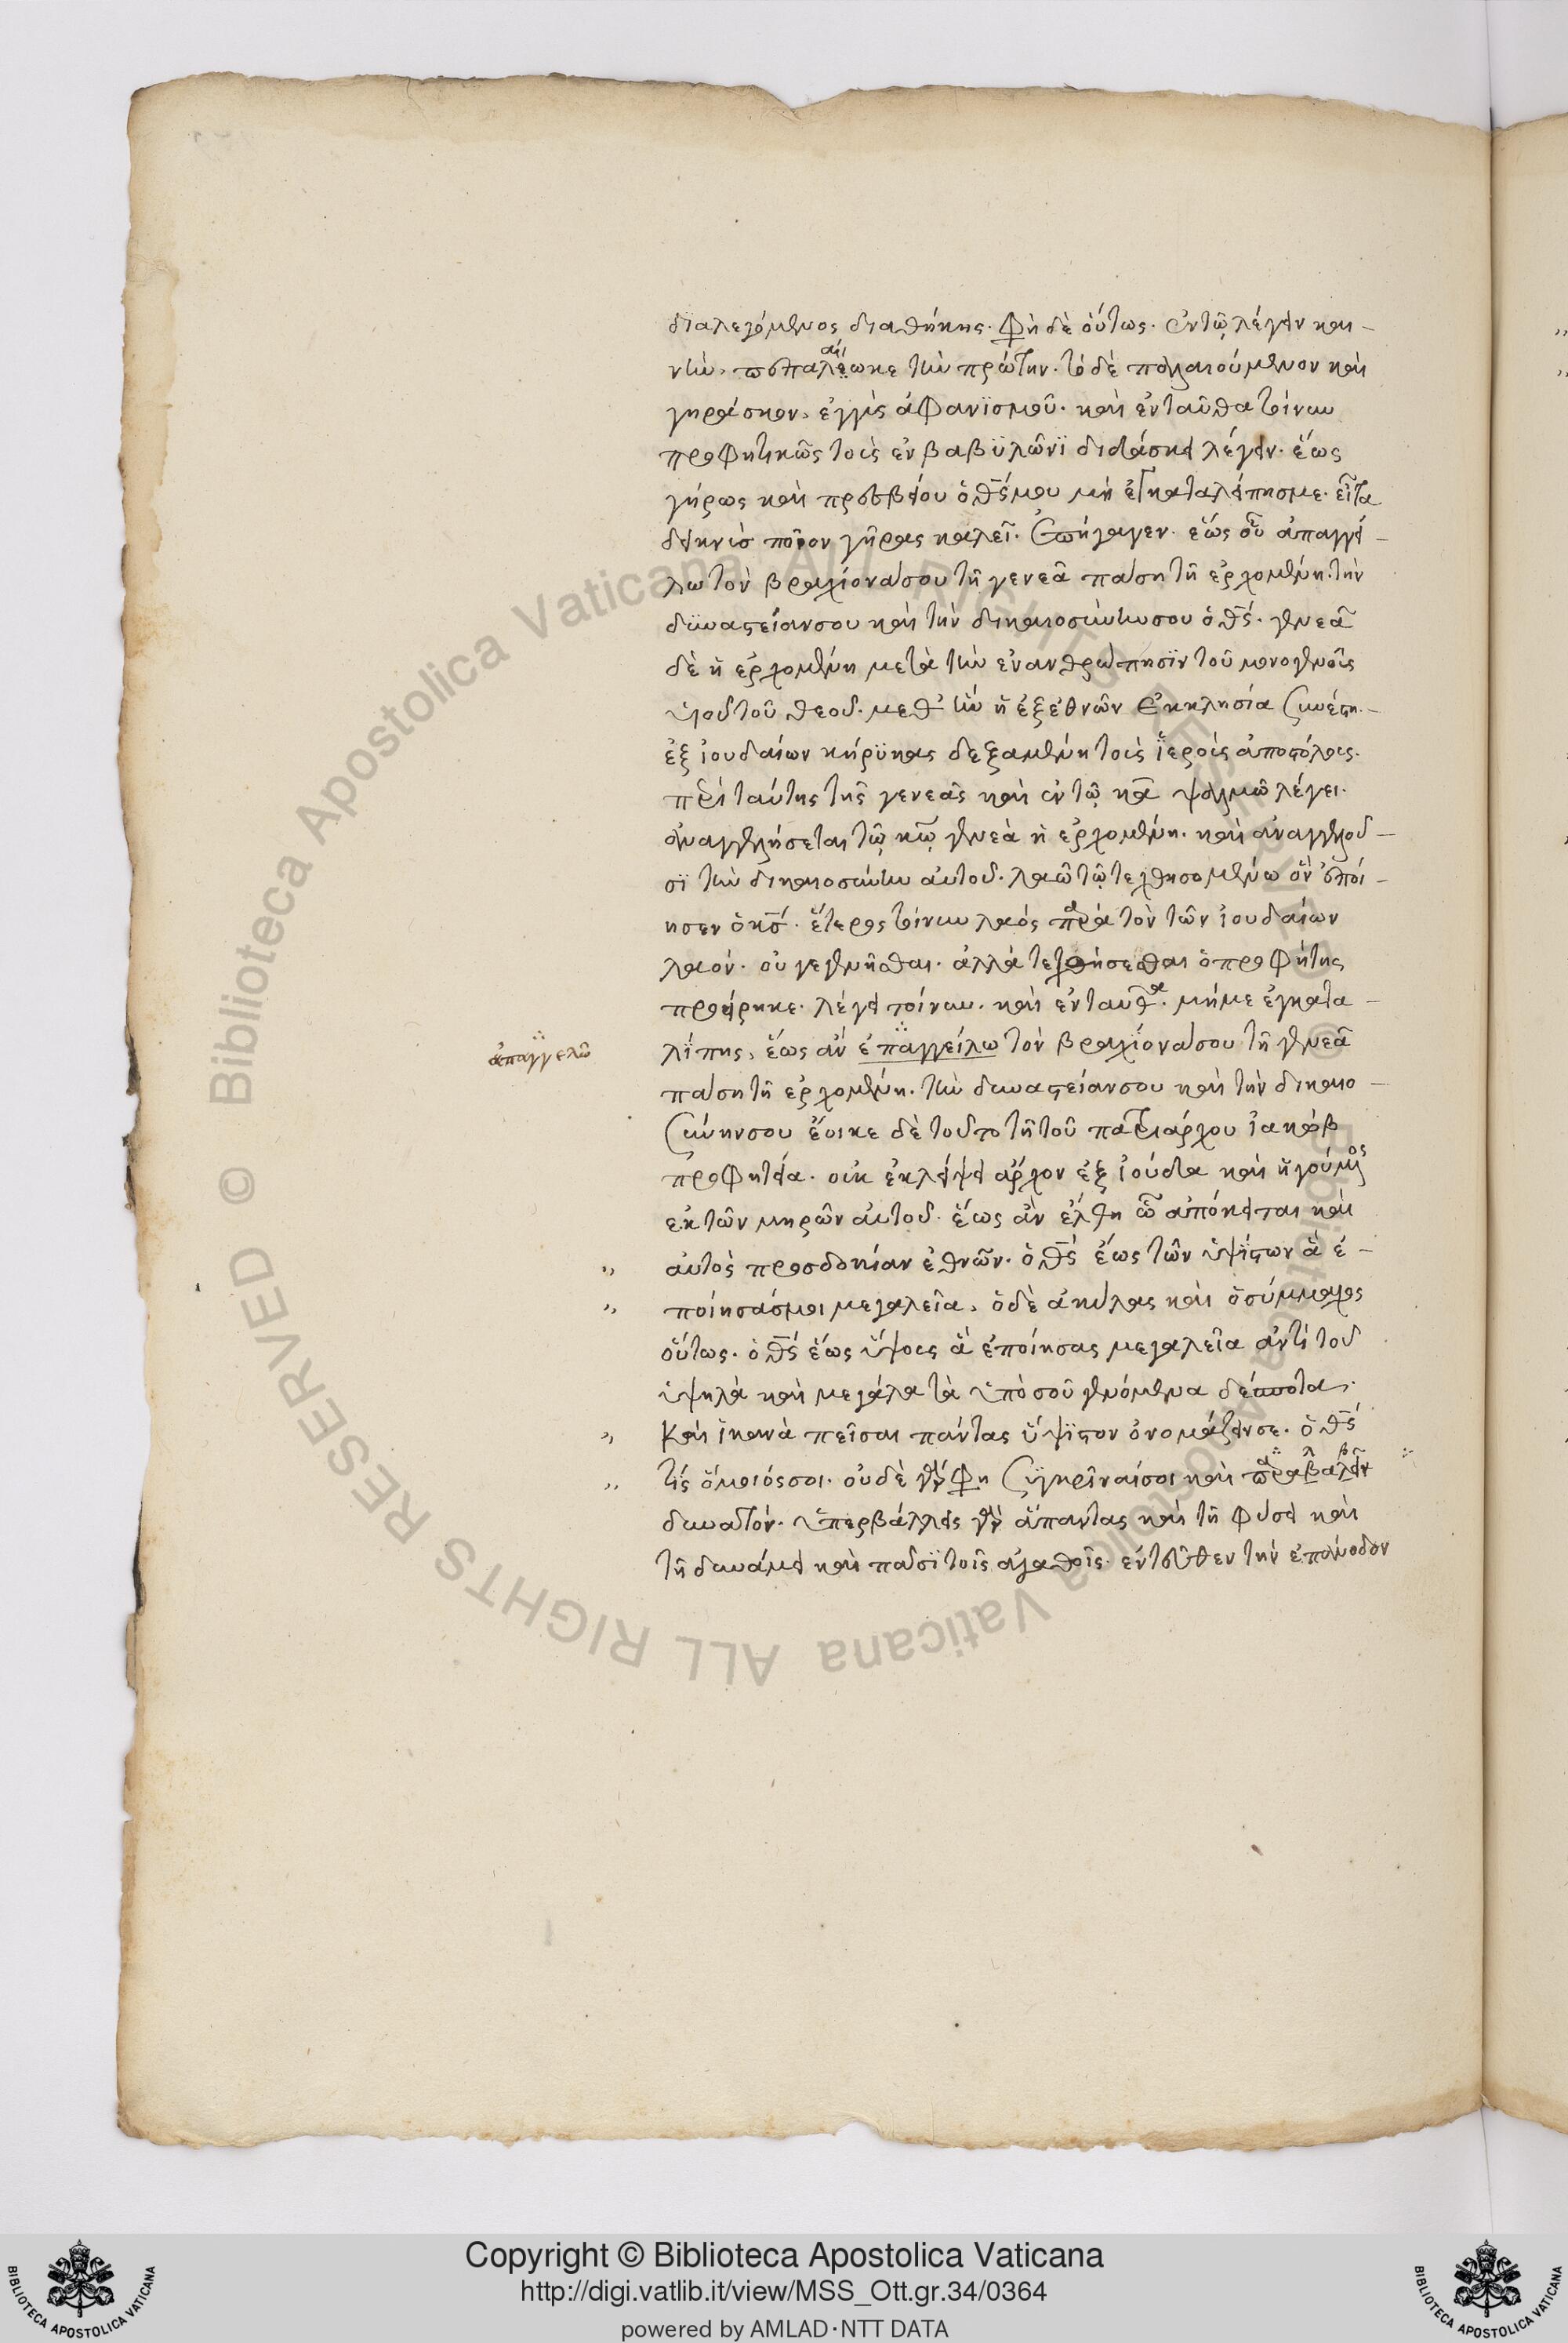 διαλεγόμενος διαθήκης. φη δὲ ὁύτως. ἐν τῶ λέγειν και-
νὴν, πεπαλαίωκε τὴν πρώτην. τὸ δὲ παλαιούμενον καὶ
γηράσκον, ἐγγὺς ἀφανϊσμοῦ. καὶ ἐνταῦθα τοίνυν
προφητικῶς τοὺς ἐν βαβϋλῶνϊ διδάσκει λέγειν. ἕως
γήρως καὶ πρεσβείου ὁ θς μου μὴ ἐγκαταλείπησ με. εἶτα
δεικνὺσ ποῖον γῆρας καλεῖ. ἐπήγαγεν. ἕως οὗ ἀπαγγεί-
λω τὸν βραχίονά σου τῆ γενεᾶ πάση τῆ ἐρχομένη. τὴν
δϋναστείαν σου καὶ τὴν δικαιοσύνην σου ὁ θς. γενεᾶ
δὲ ἡ ἐρχομένη μετὰ τὴν ἐνανθρώπησϊν τοῦ μονογενοῦς
υἱοῦ τοῦ θεοῦ. μεθ' ἣν ἡ ἐξ ἐθνῶν ἐκκλησία συνέστη.-
ἐξ ἰουδαίων κήρϋκας δεξαμένη τοὺς ἱεροὺς ἀποστόλους.
περὶ ταύτης τῆς γενεᾶς καὶ ἐν τῶ κα ψαλμῶ λέγει.
ἀναγγελήσεται τῶ κω γενεὰ ἡ ἐρχομένη. καὶ ἀναγγελοῦ-
σϊ τὴν δικαιοσύνην αὐτοῦ. λαῶ τῶ τεχθησομένω ὃν ἐποί-
ησεν ὁ κς. ἕτερος τοίνυν λαός παρὰ τὸν τῶν ἰουδαίων
λαόν. οὐ γεγενῆσθαι. ἀλλὰ τεχθήσεσθαι ὁ προφήτης
προείρηκε. λέγει τοίνυν. καὶ ἐνταῦθα. μή με ἐγκατα-
λίπης, ἕως ἂν ἐπαγγείλω τὸν βραχίονά σου τῆ γενεᾶ
ἀπαγγελῶ
πάση τῆ ἐρχομένη. τὴν δυναστείαν σου καὶ τὴν δικαιο-
σύνην σου ἔοικε δὲ τοῦτο τῆ τοῦ πατριάρχου ἰακώβ
προφητεία. οὐκ ἐκλείψει ἄρχον ἐξ ἰούδα καὶ ἡγούμενος
ἐκ τῶν μηρῶν αὐτοῦ. ἕως ἂν ἔλθη ὧ ἀπόκειται καὶ
" αὐτὸς προσδοκίαν ἐθνῶν. ὁ θς ἕως τῶν ὑψίστων ἃ ἐ-
" ποίησάς μοι μεγαλεῖα, ὁ δὲ ἀκύλας καὶ ὁ σύμμαχος
οὕτως. ὁ θς ἕως ὕψους ἃ ἐποίησας μεγαλεῖα ἀντὶ τοῦ
ὑψηλὰ καὶ μεγάλα τὰ ὑπὸ σοῦ γενόμενα δέσποτα,
" καὶ ἱκανὰ πεῖσαι πάντας ὕψϊστον ὀνομάζειν σε. ὁ θς
" τίς ὅμοιός σοι. οὐδὲ γὰρ φη συγκρῖναί σοι καὶ παραβαλεῖν
δυνατόν. ὑπερβάλλεις γὰρ ἅπαντας καὶ τῆ φύσει καὶ
τῆ δυνάμει καὶ πᾶσϊ τοῖς ἀγαθοῖς. ἐντεῦθεν τὴν ἐπάνοδον
Copyright © Biblioteca Apostolica Vaticana
http://digi.vatlib.it/view/MSS_Ott.gr.34/0364
powered by AMLAD·NTT DATA
BIBLIOTECA APOSTOLICA VATICANA
BIBLIOTECA APOSTOLICA VATICANA
© Biblioteca Apostolica Vaticana ALL RIGHTS RESERVED
© Biblioteca Apostolica Vaticana ALL RIGHTS RESERVED